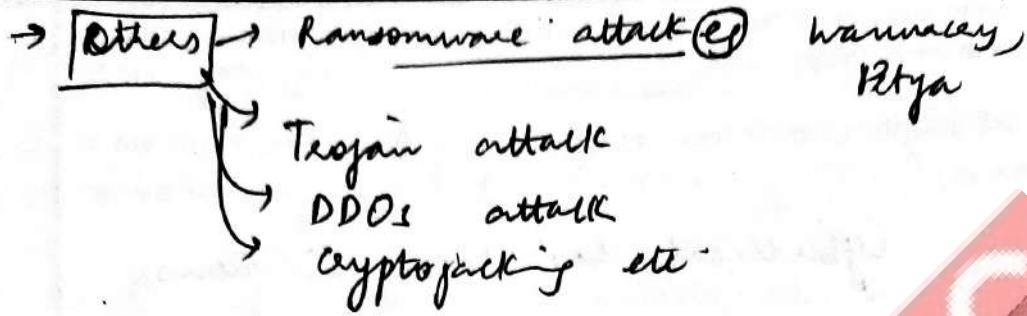 → Others → Ransomware attack eg Wannacry,
Petya
Trojan attack
DDOs attack
Cryptojacking etc.